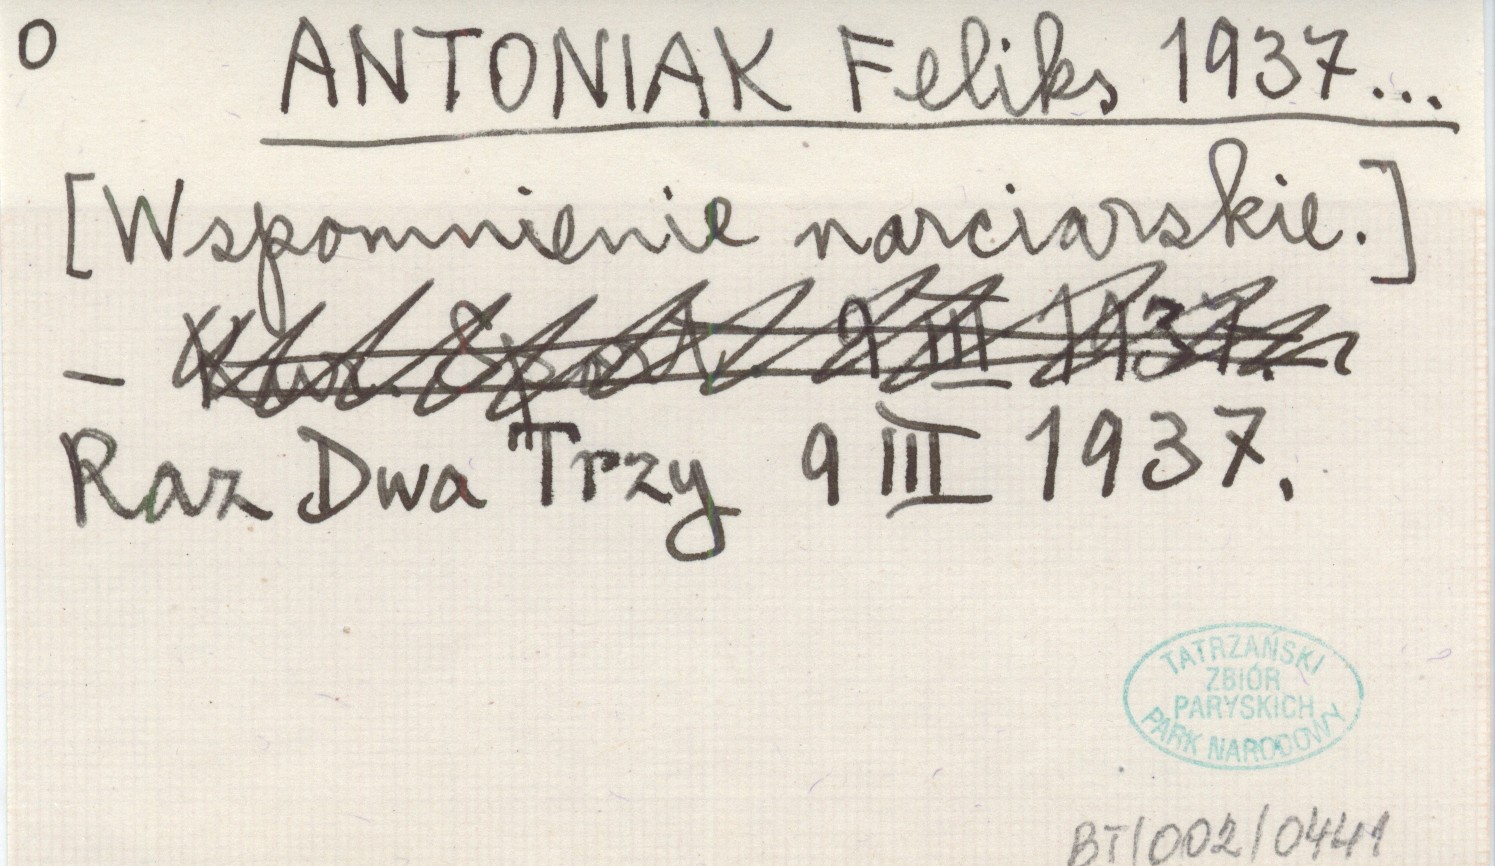 O ANTONIAK Feliks 1937...
[Wspomnienie narciarskie.]
– Kur. Sport. 9 III 1937.
Raz Dwa Trzy 9 III 1937.
TATRZAŃSKI
ZBIÓR
PARYSKICH
PARK NARODOWY
BT/002/0441